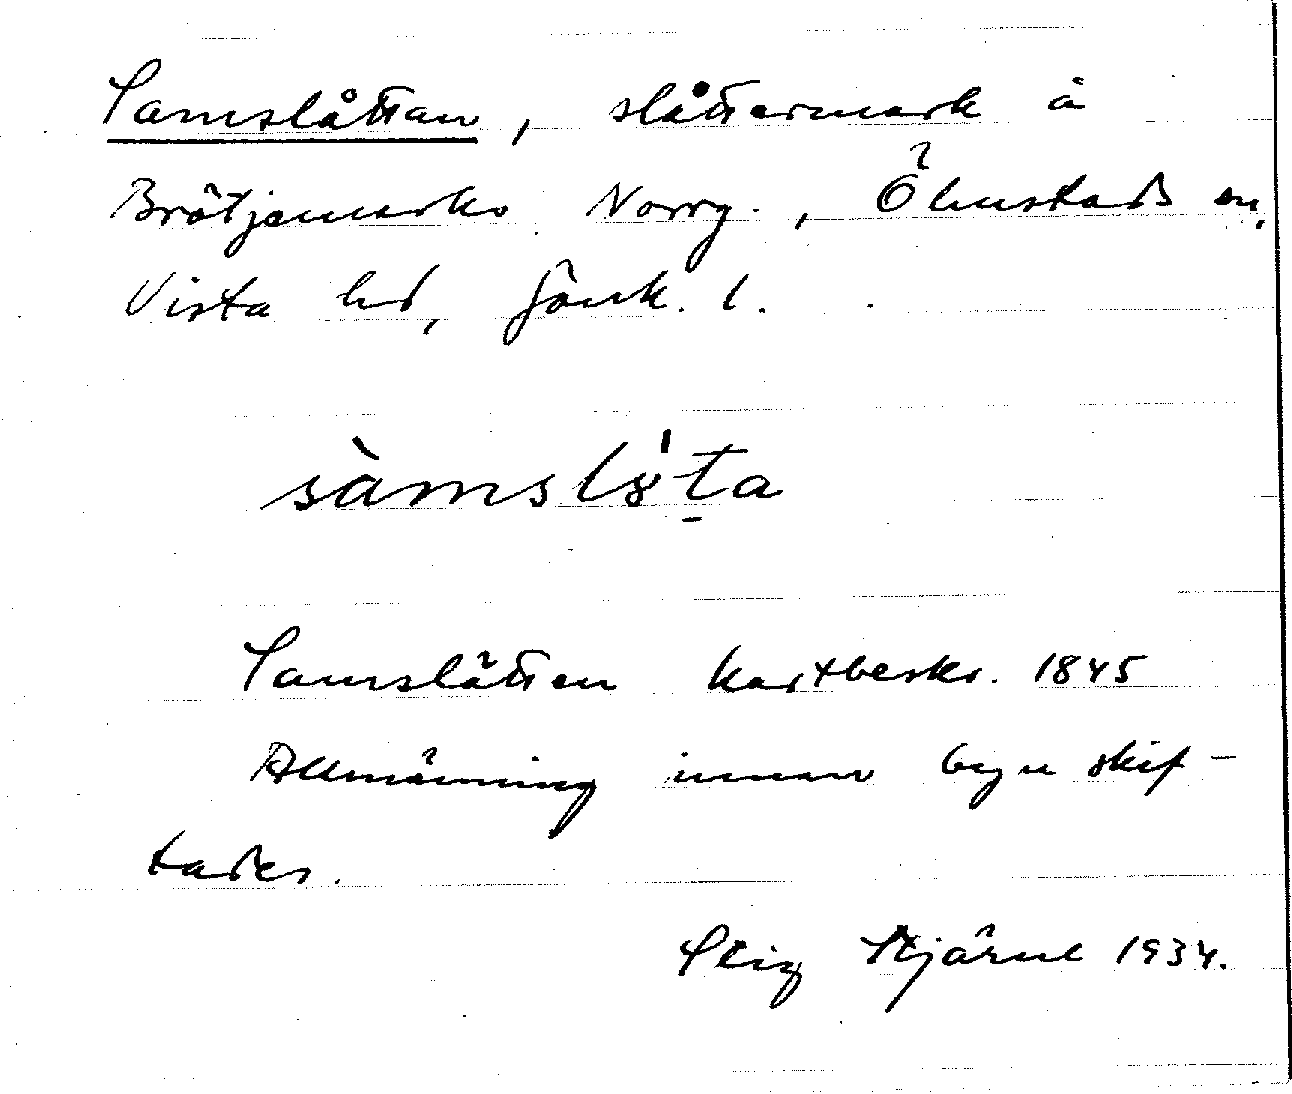 Samslåttan, slåttermark å
Brötjemarks Norrg., Ölmstads sn,
Vista hd, Jönk. l.
sàmslɤ̍t̠a
Samslåtten kartbeskr. 1845
Allmänning innan byn skif-
tades.
Stig Stjärne 1934.